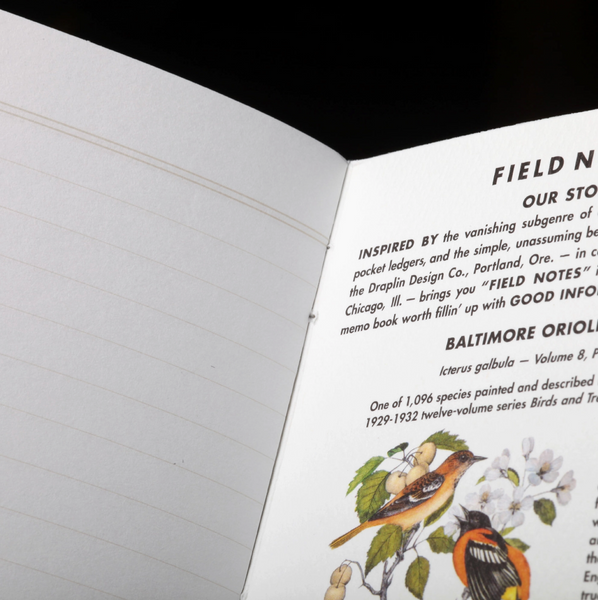 FIELD
OUR
INSPIRED BY the vanishing subgenre of
pocket ledgers, and the simple, unassuming
the Draplin Design Co., Portland, Ore. — in
Chicago, Ill. — brings you “FIELD NOTES”
memo book worth fillin’ up with GOOD
BALTIMORE
Icterus galbula — Volume 8,
One of 1,096 species painted and described
1929-1932 twelve-volume series Birds and